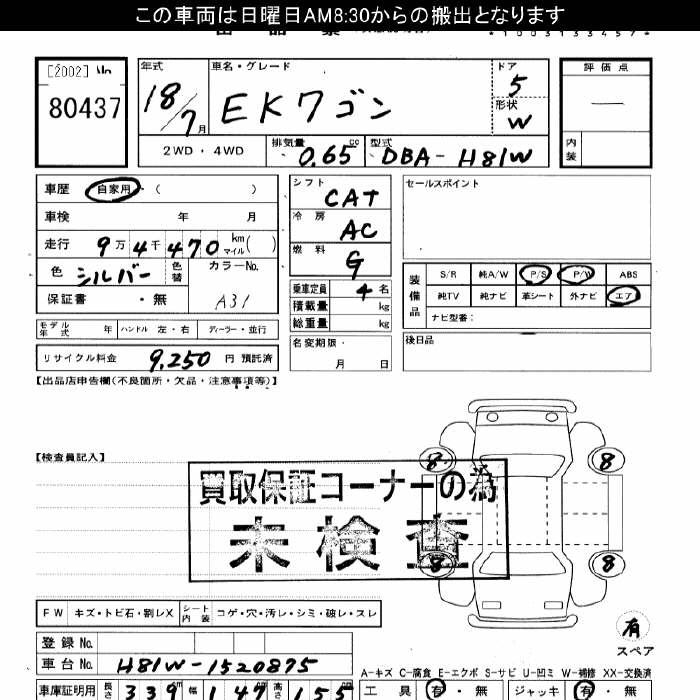 この車両は日曜日AM8:30からの搬出となります
*1003133457*
[2002] No 年式 車名・グレード ドア 評価点
80437 18/7月 EKワゴン 5 —
形状 W
2WD・4WD 排気量 0.65 cc 型式 DBA-H81W 内装
車歴 自家用 ( ) シフト CAT セールスポイント
車検 年 月 冷房 AC
走行 9万4千470 km マイル ( ) 燃料 G
色 シルバー 色替 カラーNo. A31 装備品 S/R 純A/W P/S P/W ABS
保証書 ・無 乗車定員 4名 純TV 純ナビ 革シート 外ナビ エア
積載量 kg ナビ型番:
モデル年式 年 ハンドル 左・右 ディーラー・並行 総重量 kg
リサイクル料金 9,250 円 預託済 名変期限・ 月 日 後日品
【出品店申告欄(不良箇所・欠品・注意事項等)】
【検査員記入】
8 8
買取保証コーナーの為
未検査
8 8
FW キズ・トビ石・割レX シート内装 コゲ・穴・汚レ・シミ・破レ・スレ
有
スペア
登録No.
車台No. H81W-1520875
A-キズ C-腐食 E-エクボ S-サビ U-凹ミ W-補修 XX-交換済
車庫証明用 長さ 339 幅 147 高さ 155 工具 有・無 ジャッキ 有・無